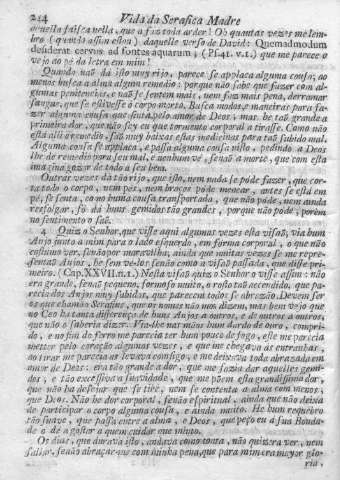 214 Vida da Serafica Madre
desta faisca nella, que a faz toda arder! Oh quantas vezes me lem-
bro (quando assim estou) daquelle verso de David: Quemadmodum
desiderat cervus ad fontes aquarum; (Ps. 41. v. 1.) que me parece o
vejo ao pé da letra em mim!
Quando naõ dá isto muy rijo, parece se applaca alguma cousa; ao
menos busca a alma algum remedio; porque naõ sabe que fazer com al-
gumas penitencias, e naõ se sentem mais, nem faz mais pena, derramar
sangue, que se estivesse o corpo morto. Busca modos, e maneiras para fa-
zer alguma cousa que sinta pelo amor de Deos; mas he taõ grande a
primeira dor, que naõ sey eu que tormento corporal a tirasse. Como naõ
está alli o remedio, saõ muy baixas estas medicinas para taõ subido mal.
Alguma cousa se applaca, e passa alguma cousa nisto, pedindo a Deos
lhe de remedio para seu mal, e nenhum vé, senaõ a morte, que com esta
imagina gozar de todo a seu bem.
Outras vezes dá taõ rijo, que isto, nem nada se póde fazer, que cor-
ta todo o corpo, nem pés, nem braços póde menear, antes se está em
pé, se senta, como huma cousa transportada, que naõ póde, nem ainda
resfolgar, só dá huns gemidos naõ grandes, porque naõ póde, porém
no sentimento o saõ.
4 Quiz o Senhor, que visse aqui algumas vezes esta visaõ; via hum
Anjo junto a mim para o lado esquerdo, em fórma corporal, o que naõ
costumo ver, senaõ por maravilha, ainda que muitas vezes se me repre-
sentaõ Anjos, he sem vellos, senaõ como a visaõ passada, que disse pri-
meiro. (Cap. XXVII. n. 1.) Nesta visaõ quiz o Senhor o visse assim: naõ
era grande, senaõ pequeno, formoso muito, o rosto taõ accendido, que pa-
recia dos Anjos muy subidos, que parecem todos se abrazaõ. Devem ser
os que chamaõ Serafins, que os nomes naõ nos dizem, mas bem vejo que
no Ceo ha tanta differença de huns Anjos a outros, e de outros a outros,
que naõ o saberia dizer. Via-lhe nas mãos hum dardo de ouro, compri-
do, e no fim do ferro me parecia ter hum pouco de fogo, este me parecia
metter pelo coraçaõ algumas vezes, e que me chegava às entranhas,
ao tirar me parecia as levava comsigo, e me deixava toda abrazada em
amor de Deos: era taõ grande a dor, que me fazia dar aquelles gemi-
dos, e taõ excessiva a suavidade, que me põem esta grandissima dor,
que naõ ha desejar que se tire, nem se contenta a alma com menos,
que Deos. Naõ he dor corporal, senaõ espiritual, ainda que naõ deixa
de participar o corpo alguma cousa, e ainda muito. He hum requebro
taõ suave, que passa entre a alma, e Deos, que peço eu a sua Bonda-
de o dé a gostar a quem cuidar que minto.
Os dias, que durava isto, andava como tonta, naõ quizera ver, nem
fallar, senaõ abraçar-me com minha pena, que para mim era mayor glo-
ria,